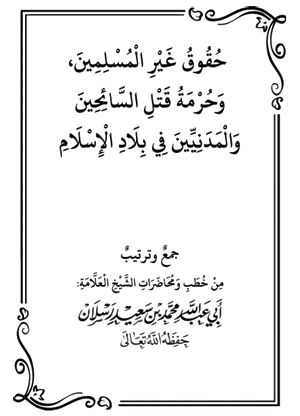 حُقُوقُ غَيْرِ الْمُسْلِمِينَ،
وَحُرْمَةُ قَتْلِ السَّائِحِينَ
وَالْمَدَنِيِّينَ فِي بِلَادِ الْإِسْلَامِ
جمعٌ وترتيبٌ
مِنْ خُطَبِ وَمُحَاضَرَاتِ الشَّيْخِ الْعَلَّامَةِ:
أَبِي عَبْدِ اللَّهِ مُحَمَّدِ بْنِ سَعِيدٍ رَسْلَان
حَفِظَهُ اللَّهُ تَعَالَى